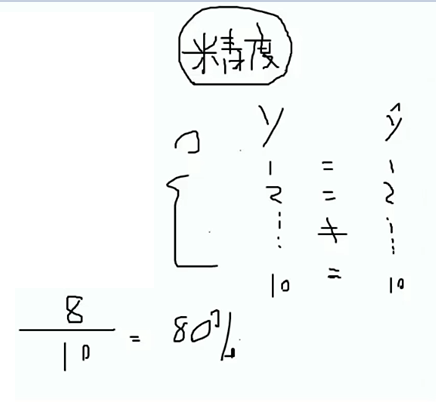 精度
y ŷ
1 = 1
2 = 2
⋮ ≠ ⋮
10 = 10
8/10 = 80%